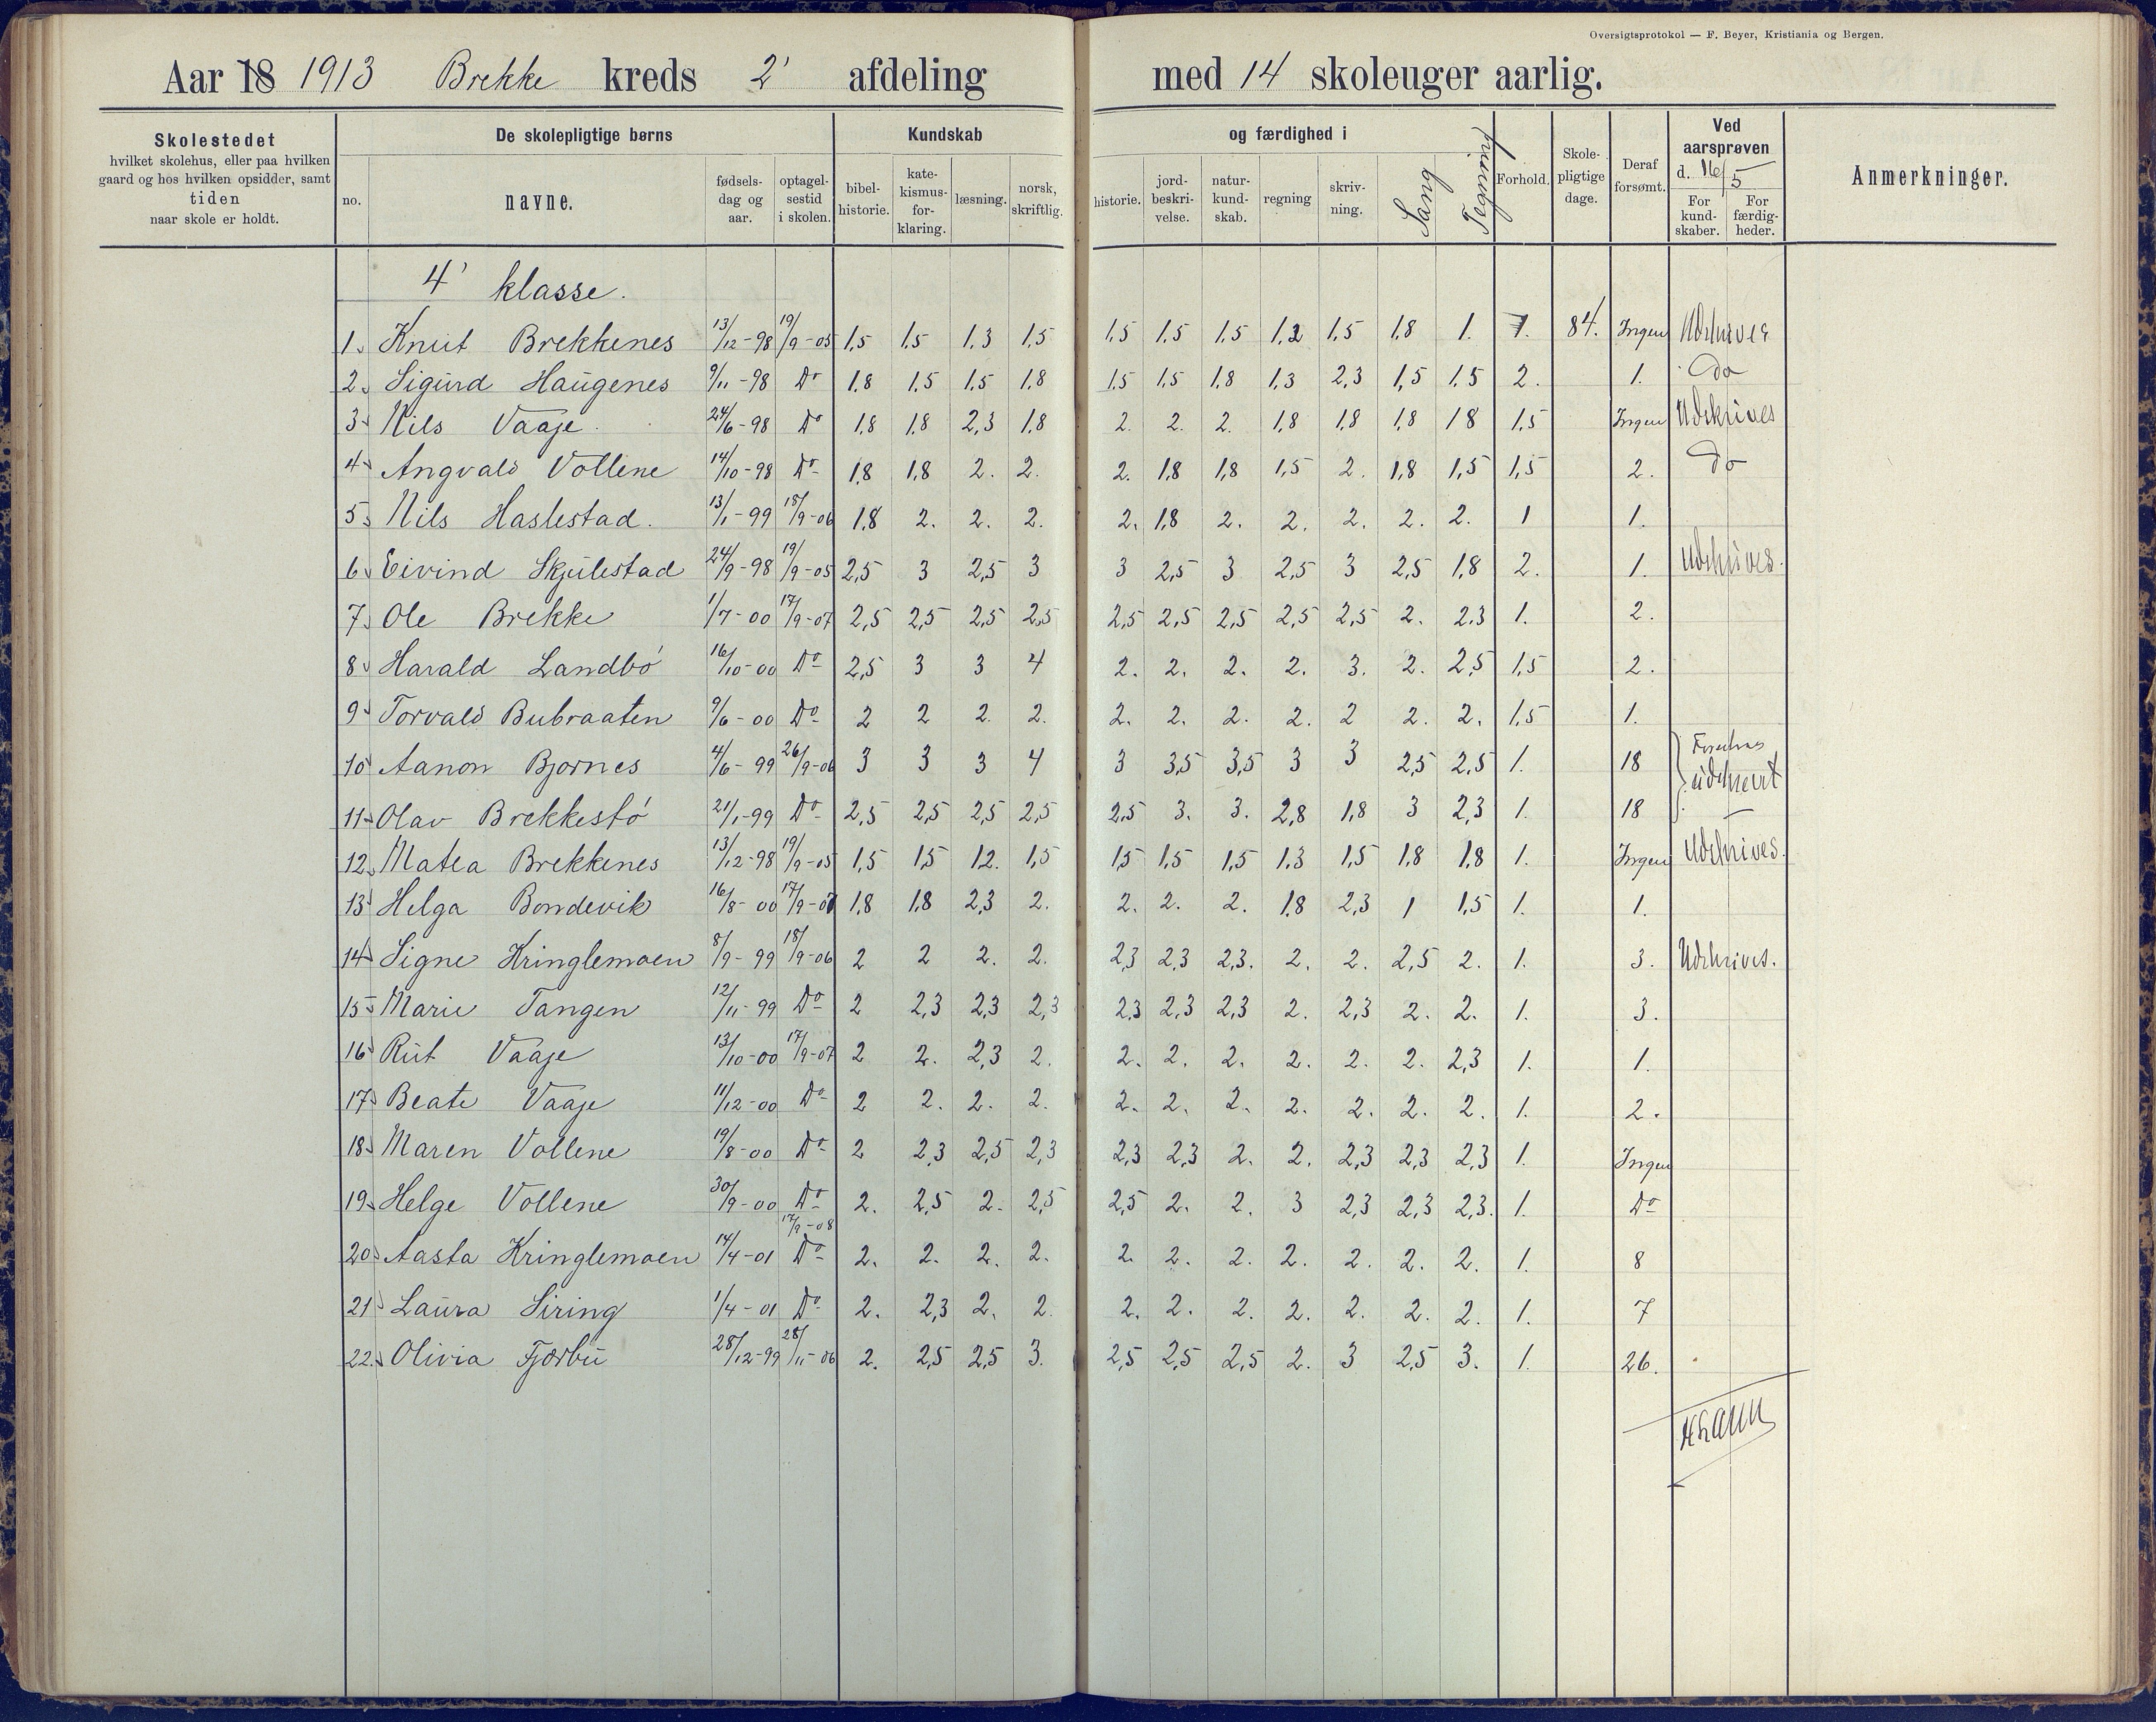 Oversigtsprotokol — F. Beyer, Kristiania og Bergen.
Aar 18 1913 Brekke kreds 2' afdeling med 14 skoleuger aarlig.
Skolestedet
hvilket skolehus, eller paa hvilken
gaard og hos hvilken opsidder, samt
tiden
naar skole er holdt.
De skolepligtige børns
no.
navne.
fødsels-
dag og
aar.
optagel-
sestid
i skolen.
Kundskab
bibel-
historie.
kate-
kismus-
for-
klaring.
læsning.
norsk,
skriftlig.
og færdighed i
historie.
jord-
beskri-
velse.
natur-
kund-
skab.
regning
skriv-
ning.
Sang
Tegning
Forhold.
Skole-
pligtige
dage.
Deraf
forsømt.
Ved
aarsprøven
d. 16/5
For
kund-
skaber.
For
færdig-
heder.
Anmerkninger.
4' klasse.
1. Knut Brekkenes 13/12-98 19/9-05 1,5 1,5 1,3 1,5 1,5 1,5 1,5 1,2 1,5 1,8 1. 1. 84. Ingen Udskrives
2. Sigurd Haugenes 9/11-98 Do 1,8 1,5 1,5 1,8 1,5 1,5 1,8 1,3 2,3 1,5 1,5 2. 1. do
3. Nils Vaaje. 24/6-98 Do 1,8 1,8 2,3 1,8 2. 2. 2. 1,8 1,8 1,8 18 1,5 Ingen Udskrives
4. Angvald Vollene 14/10-98 Do 1,8 1,8 2. 2. 2. 1,8 1,8 1,5 2. 1,8 1,5 1,5 2. do
5. Nils Haslestad. 13/1-99 18/9-06 1,8 2. 2. 2. 2. 1,8 2. 2. 2. 2. 2. 1 1.
6. Eivind Skjulestad 24/9-98 19/9-05 2,5 3 2,5 3 3 2,5 3 2,5 3 2,5 1,8 2. 1. Udskrives.
7. Ole Brekke 1/7-00 17/9-07 2,5 2,5 2,5 2,5 2,5 2,5 2,5 2,5 2,5 2. 2.3 1. 2.
8. Harald Landbö 16/10-00 Do 2,5 3 3 4 2. 2. 2. 2. 3. 2. 2,5 1,5 2.
9. Torvald Bubraaten 9/6-00 Do 2 2 2. 2. 2. 2. 2. 2. 2 2. 2. 1,5 1.
10. Aanon Bjornes 4/6-99 26/9-06 3 3 3 4 3 3,5 3,5 3 3 2,5 2,5 1. 18 udskrevet
11. Olav Brekkestö 21/1-99 Do 2,5 2,5 2,5 2,5 2,5 3. 3. 2,8 1,8 3 2,3 1. 18
12. Matea Brekkenes 13/12-98 19/9-05 1,5 1,5 1.2. 1,5 1,5 1,5 1,5 1.3 1,5 1,8 1,8 1. Ingen Udskrives.
13. Helga Bondevik 16/8-00 17/9-07 1,8 1,8 2,3 2. 2. 2. 2. 1.8 2,3 1 1,5 1. 1.
14. Signe Kringlemoen 8/9-99 18/9-06 2 2 2. 2. 2,3 2,3 2,3. 2. 2. 2,5 2. 1. 3. Udskrives.
15. Marie Tangen 12/11-99 Do 2 2,3 2,3 2,3 2,3 2,3 2,3 2. 2,3 2. 2. 1. 3.
16. Rut Vaaje 13/10-00 17/9-07 2 2. 2,3 2. 2. 2. 2. 2. 2. 2. 2,3 1. 1.
17. Beate Vaaje 11/12-00 Do 2 2. 2. 2. 2. 2. 2. 2. 2. 2. 2. 1. 2.
18. Maren Vollene 19/8-00 Do 2 2,3 2,5 2,3 2,3 2,3 2. 2. 2,3 2,3 2,3 1. Ingen
19. Helge Vollene 30/9-00 Do 2. 2,5 2. 2,5 2,5 2. 2. 3 2,3 2,3 2,3. 1. Do
20. Aasta Kringlemoen 14/4-01 17/9-08 Do 2. 2. 2. 2. 2. 2. 2. 2. 2. 2. 2. 1. 8
21. Laura Siring 1/4-01 Do 2. 2,3 2. 2. 2. 2. 2. 2. 2. 2. 2. 1. 7
22. Olivia Fjærbu 28/12-99 28/11-06 2. 2,5 2,5 3. 2,5 2,5 2,5 2. 3 2,5 3. 1. 26.